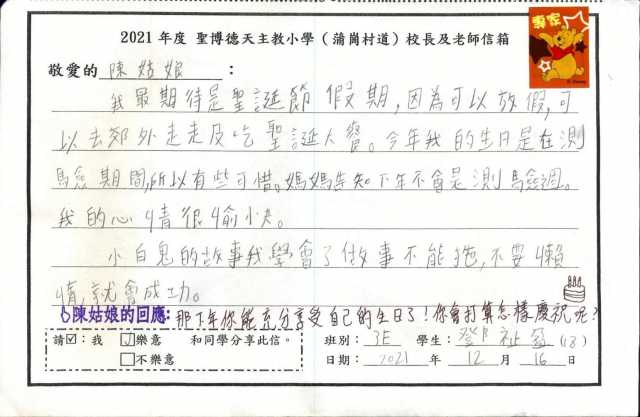 2021 年度 聖博德天主教小學（蒲崗村道）校長及老師信箱
專家
敬愛的 陳姑娘 ：
我最期待是聖誕節假期，因為可以放假，可
以去郊外走走及吃聖誕大餐。今年我的生日是在測
驗期間，所以有些可惜。媽媽告知下年不會是測驗週。
我的心情很愉快。
小白兔的故事我學會了做事不能拖，不要懶
惰，就會成功。
陳姑娘的回應：那下年你能充分享受自己的生日了！你會打算怎樣慶祝呢？
請☑：我 ☑樂意 和同學分享此信。 班別：3E 學生：鄧祉盈 (18)
□不樂意 日期：2021 年 12 月 16 日